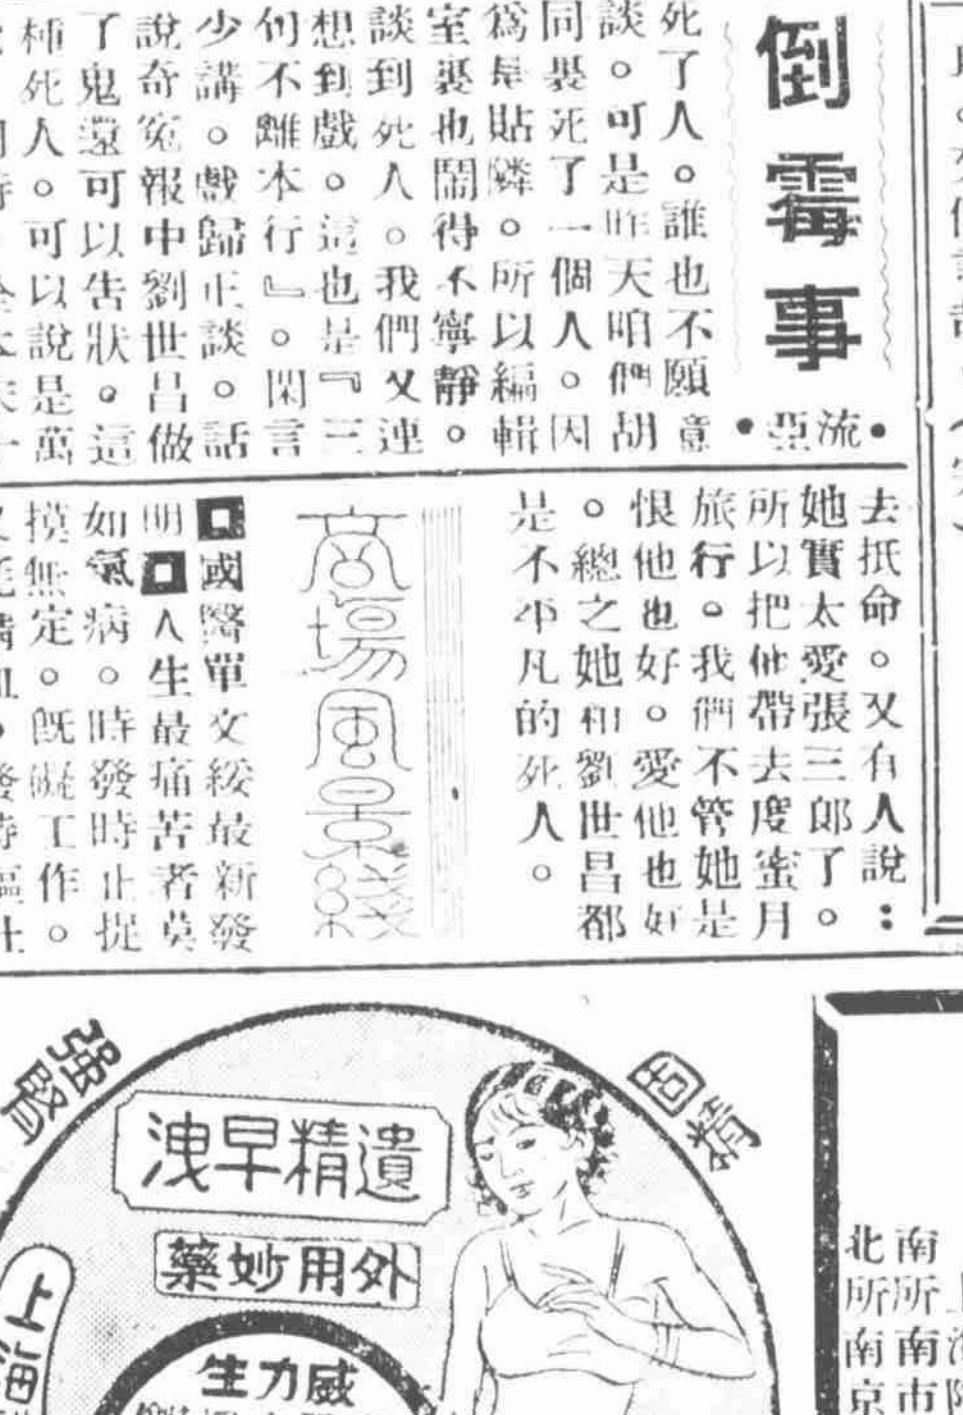 倒霉事
•流亞•
死了人。誰也不願意
談。可是昨天咱們胡
同裏死了一個人。因
爲是貼隣。所以編輯
室裏也鬧得不寧靜。
談到死人。我們又連
想到戲。這也是『三
句不離本行』。閑言
少講。戲歸正談。話
說奇冤報中劉世昌做
了鬼還可以告狀。這
種死人。可以說是萬
去抵命。又有人說：
她實太愛張三郎了。
所以把他帶去度蜜月
旅行。我們不管她是
恨他也好。愛他也好
。總之她和劉世昌都
是不平凡的死人。
商場風景綫
國醫單文綏最新發
明
人生最痛苦者莫
如氣病。時發時止捉
摸無定。既礙工作。
固精
强腎
遺精早洩
外用妙藥
威力生
上海
南所南市
北所南京